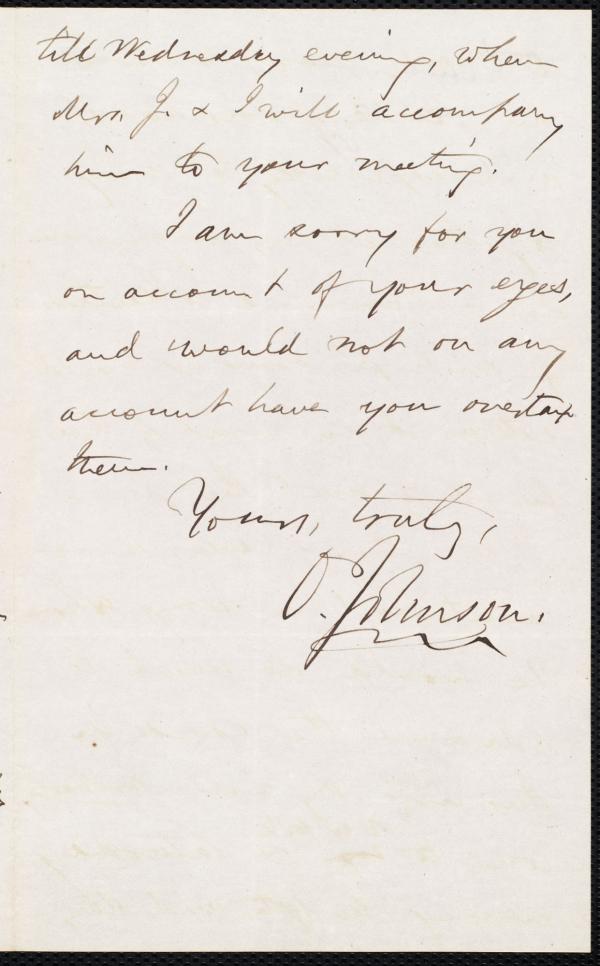 till Wednesday evening, when
Mrs. J. & I will accompany
him to your meeting.
I am sorry for you
on account of your eyes,
and would not on any
account have you overtax
them.
Yours, truly,
O. Johnson.